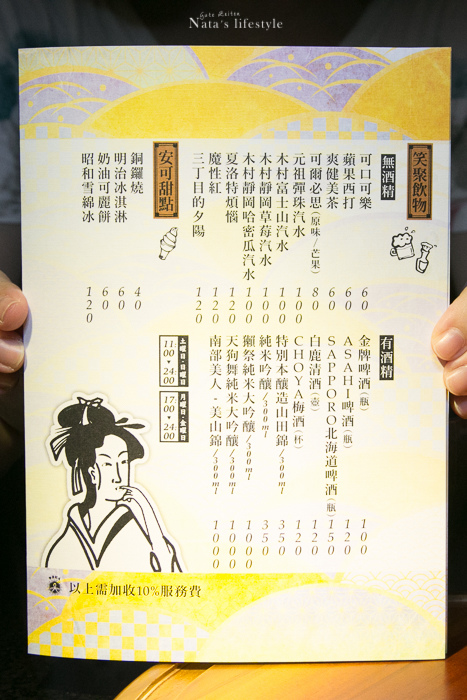 Gate Keiten
Nata's lifestyle
笑聚飲物
無酒精
可口可樂 60
蘋果西打 60
爽健美茶 60
可爾必思(原味/芒果) 80
元祖彈珠汽水 100
木村富士山汽水 100
木村靜岡草莓汽水 100
木村靜岡哈密瓜汽水 100
夏洛特煩惱 120
魔性紅 120
三丁目的夕陽 120
有酒精
金牌啤酒(瓶) 100
ASAHI啤酒(瓶) 120
SAPPORO北海道啤酒(瓶) 150
白鹿清酒(壺) 120
CHOYA梅酒(杯) 120
特別本釀造山田錦/300ml 350
純米吟釀/300ml 350
獺祭純米大吟釀/300ml 1000
天狗舞純米大吟釀/300ml 1000
南部美人-美山錦/300ml 1000
安可甜點
銅鑼燒 40
明治冰淇淋 60
奶油可麗餅 60
昭和雪綿冰 120
月曜日-金曜日
17:00-24:00
土曜日-日曜日
11:00-24:00
以上需加收10%服務費